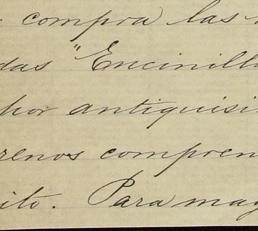 compra las
das "Encinill
por antiquisi
renos compren
ito. Para may